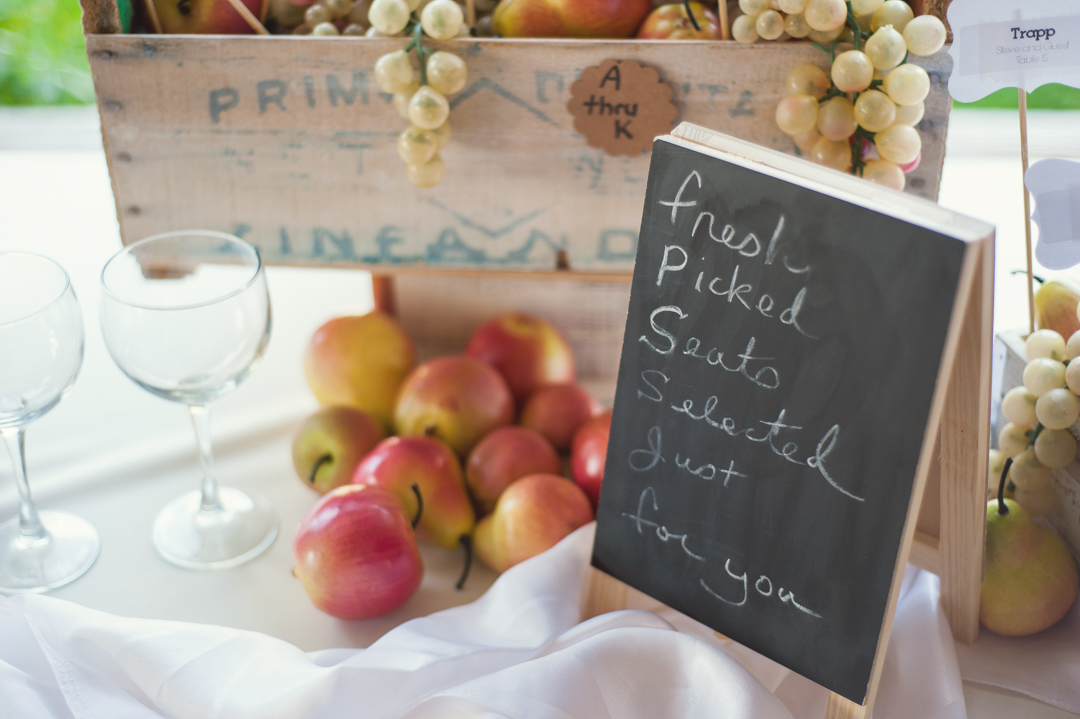 A
thru
K
Trapp
Steve and Guest
Table 5
fresh
Picked
Seats
Selected
Just
for you